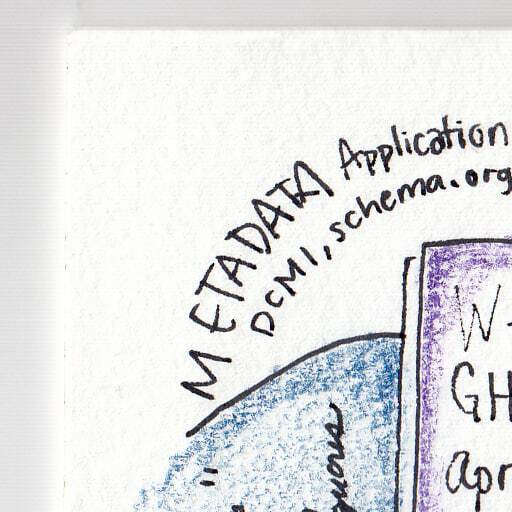 METADATA Application
DCMI, schema.org
W
GH
apr